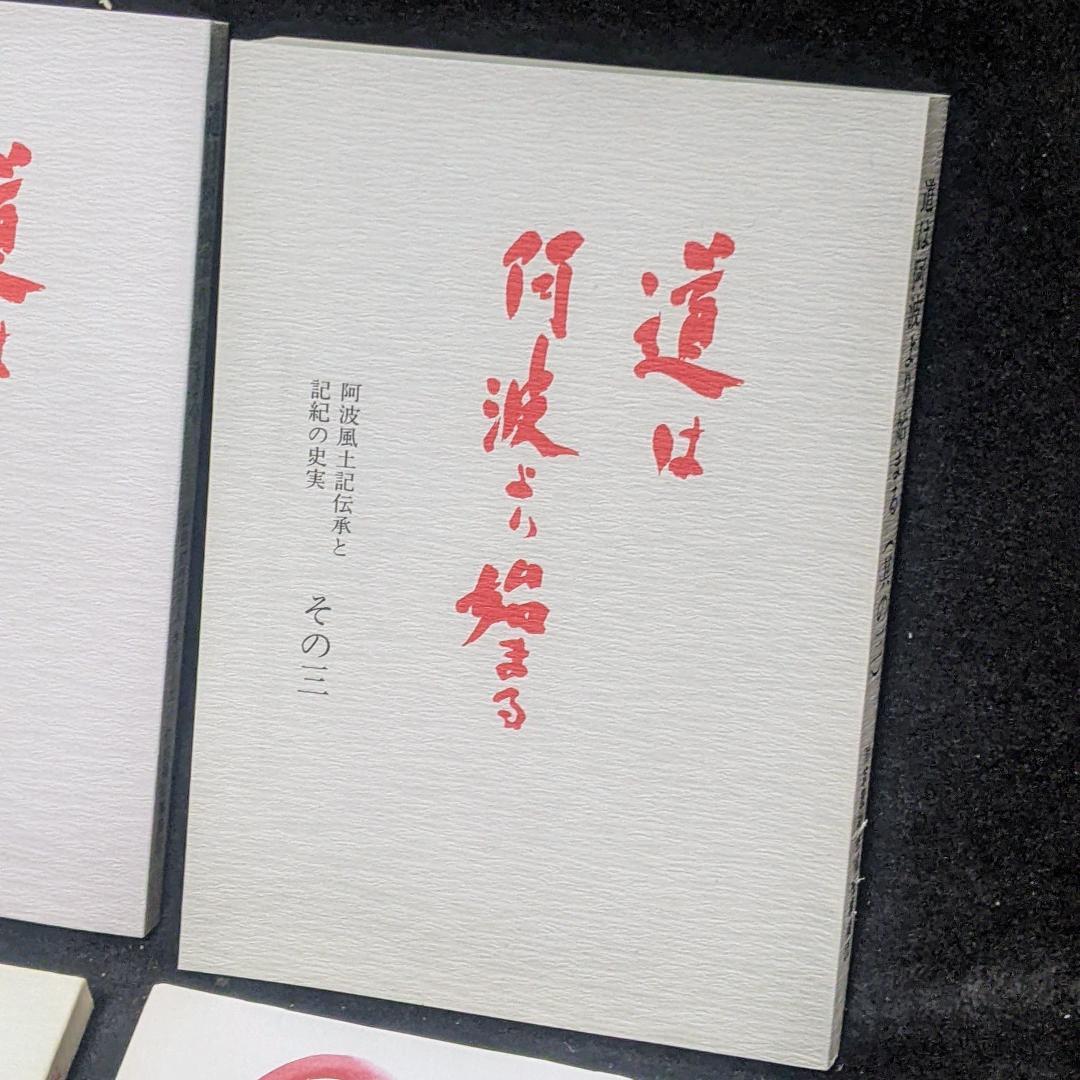 道は
阿波より始まる
阿波風土記伝承と
記紀の史実
その三
道は阿波より始まる(其の三)
道は